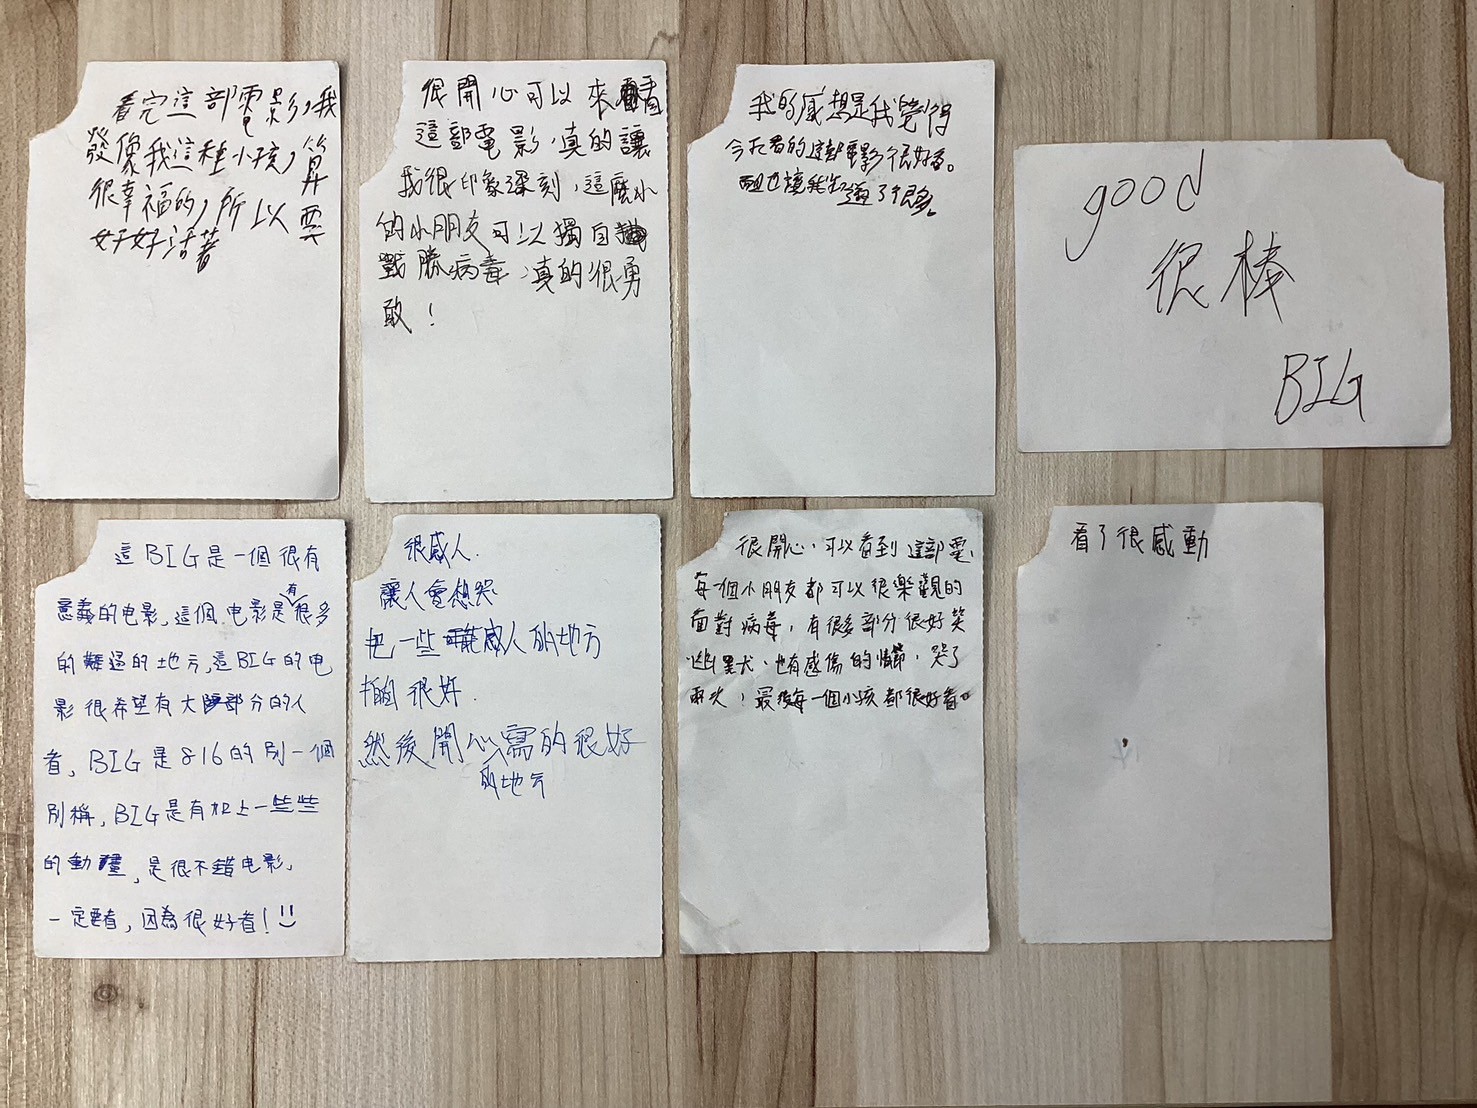 看完這部電影,我
發像我這種小孩,算
很幸福的,所以要
好好活著
很開心可以來看
這部電影,真的讓
我很印象深刻,這麼小
的小朋友可以獨自
戰勝病毒,真的很勇
敢!
我的感想是我覺得
今天看的這部電影很好看。
而且也讓我知道了很多。
good
很棒
BIG
這BIG是一個很有
意義的电影,這個电影是有很多
的難過的地方,這BIG的电
影很希望有大部分的人
看,BIG是816的別一個
別稱,BIG是有加上一些些
的動畫,是很不錯电影,
一定要看,因為很好看!
很感人.
讓人會想哭
把一些感人的地方
拍個很好.
然後開心的地方寫的很好
很開心,可以看到這部電,
每一個小朋友都可以很樂觀的
面對病毒,有很多部分很好笑
幽默,也有感傷的情節,哭了
兩次!最後每一個小孩都很好看。
看了很感動